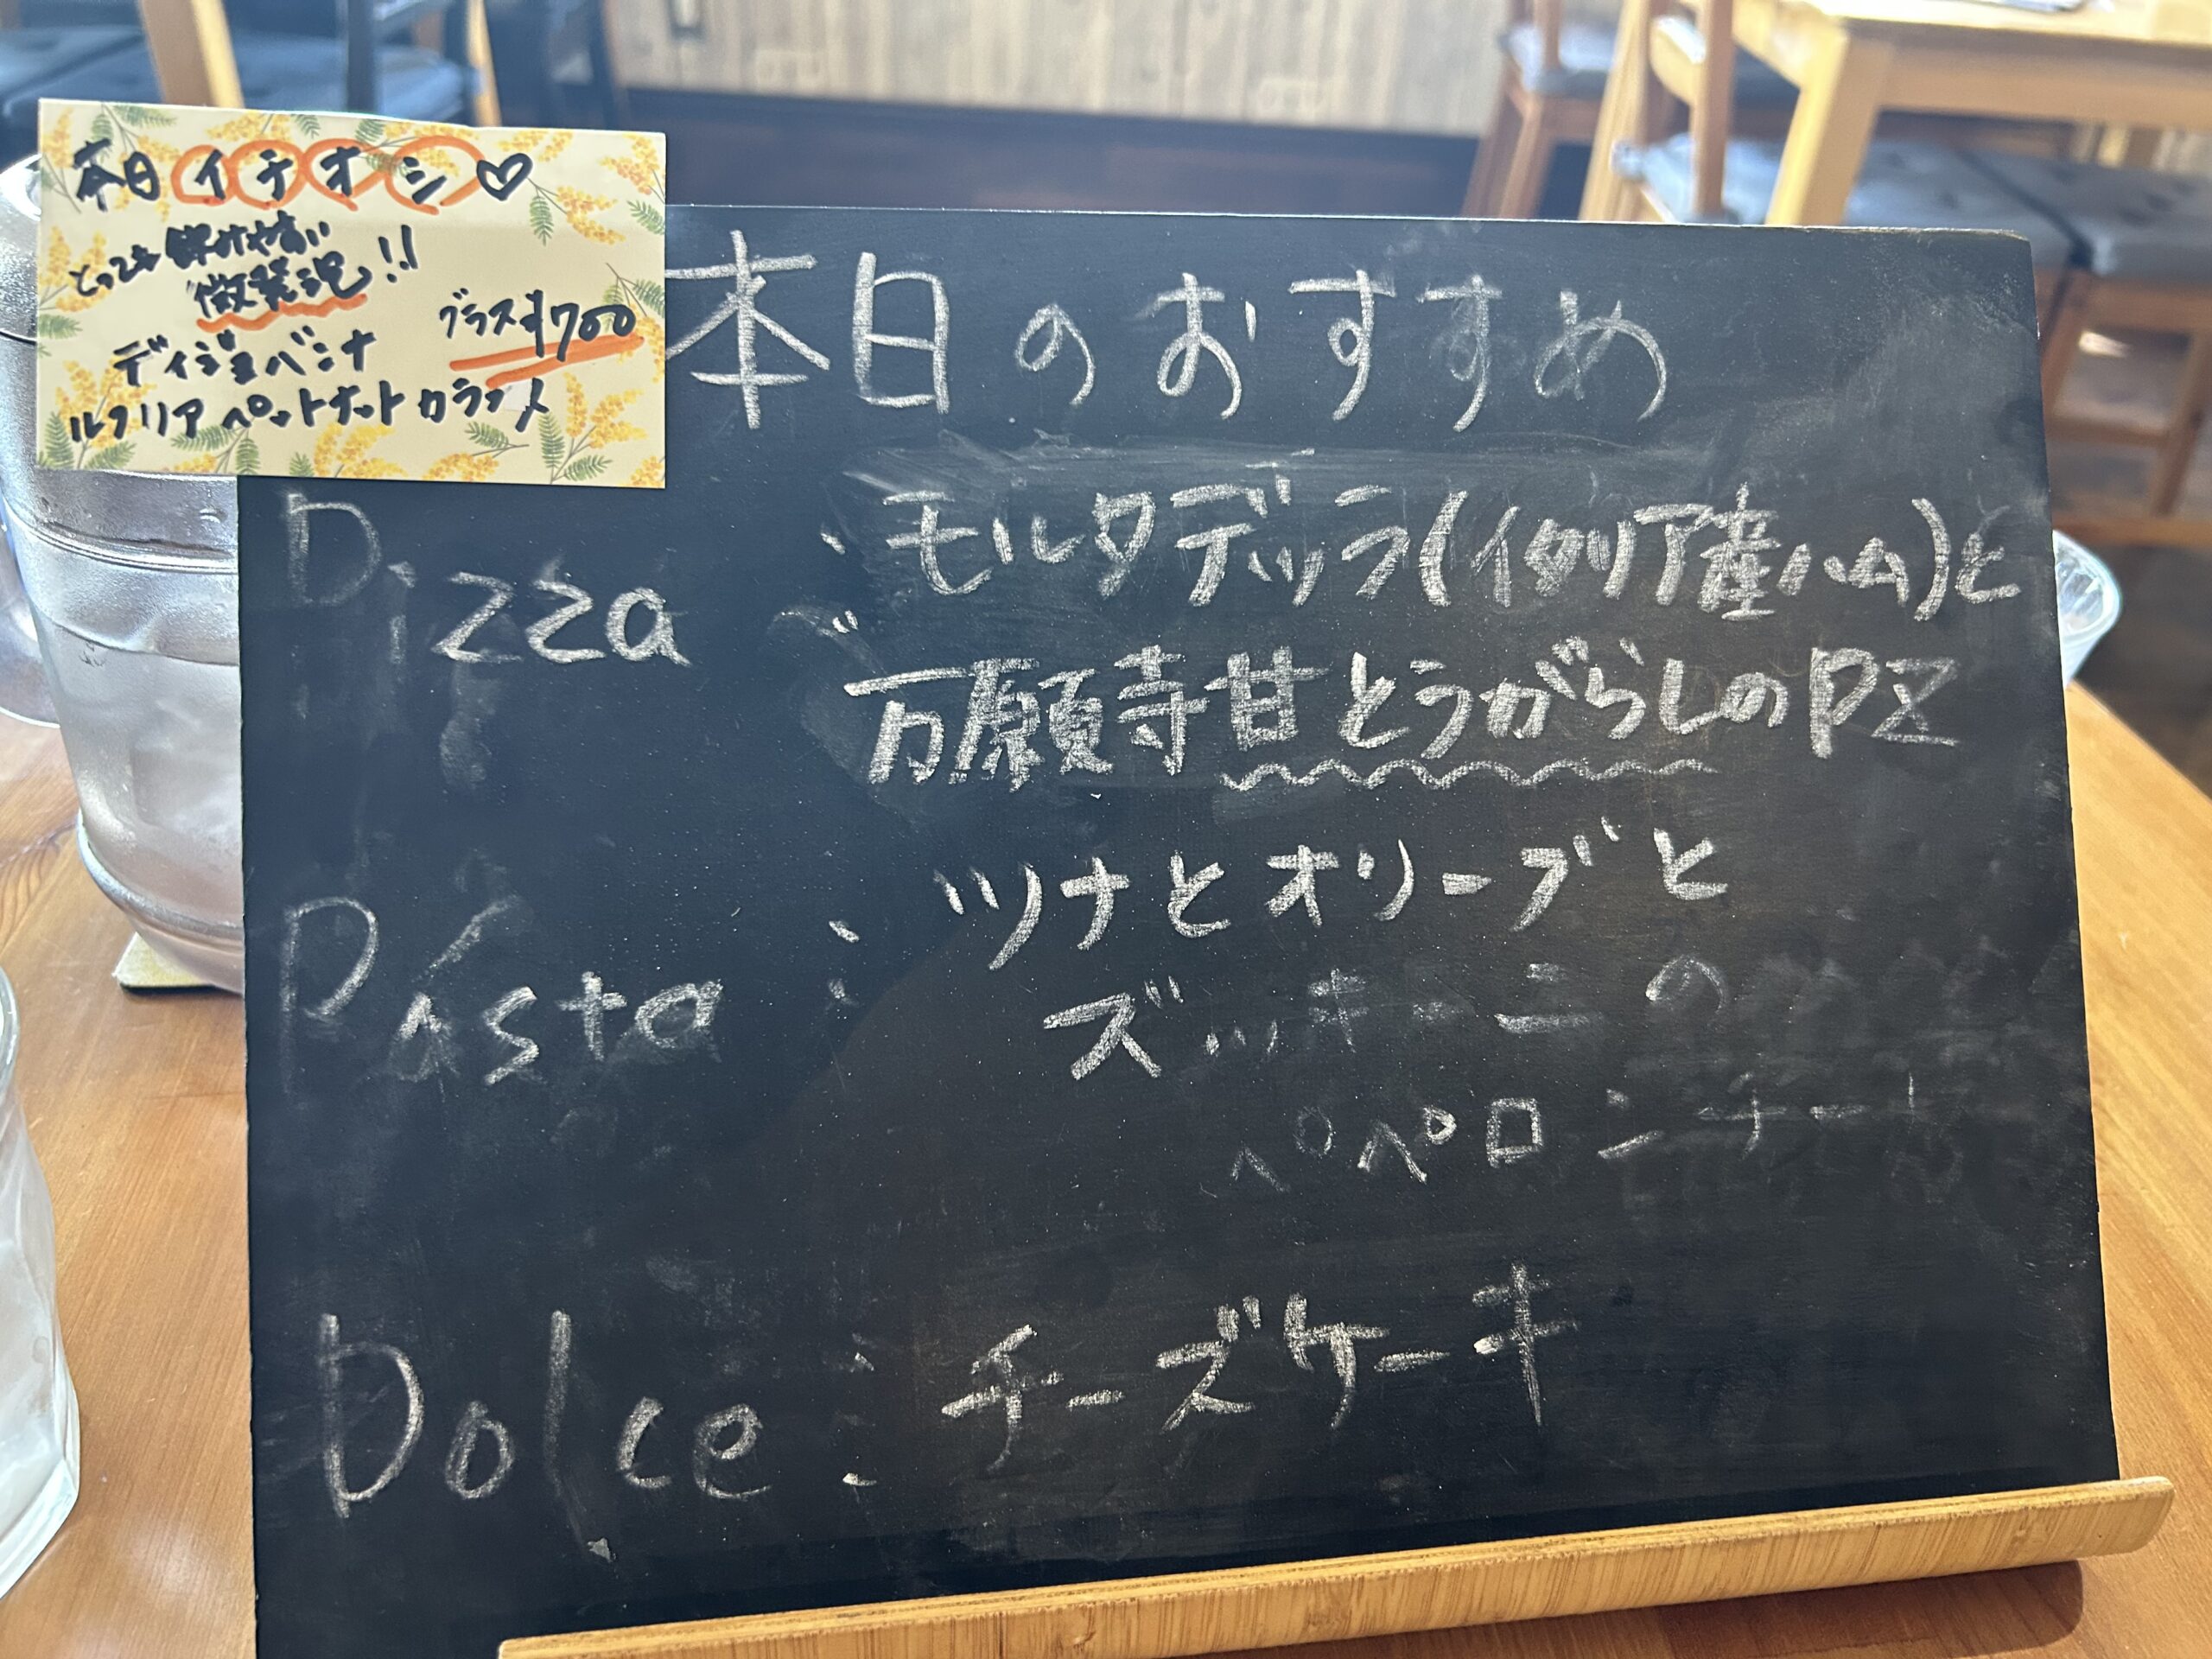 本日イチオシ♡
とっても飲みやすい
微発泡!!
グラス¥700
ディジョバンナ
ルフリアペットナットカラフメ
本日のおすすめ
Pizza : モルタデッラ(イタリア産ハム)と
万願寺甘とうがらしのPZ
Pasta : ツナとオリーブと
ズッキーニの
ペペロンチーノ
Dolce : チーズケーキ